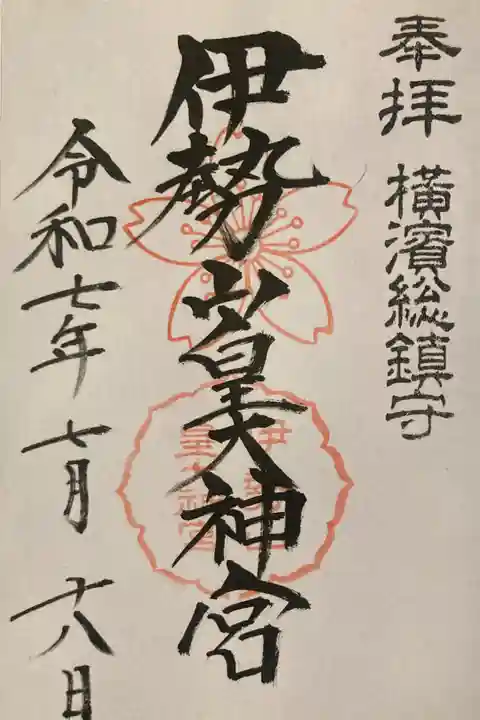 奉拝 横濱総鎮守
伊勢山皇大神宮
令和七年七月十八日
伊勢山
皇大神宮